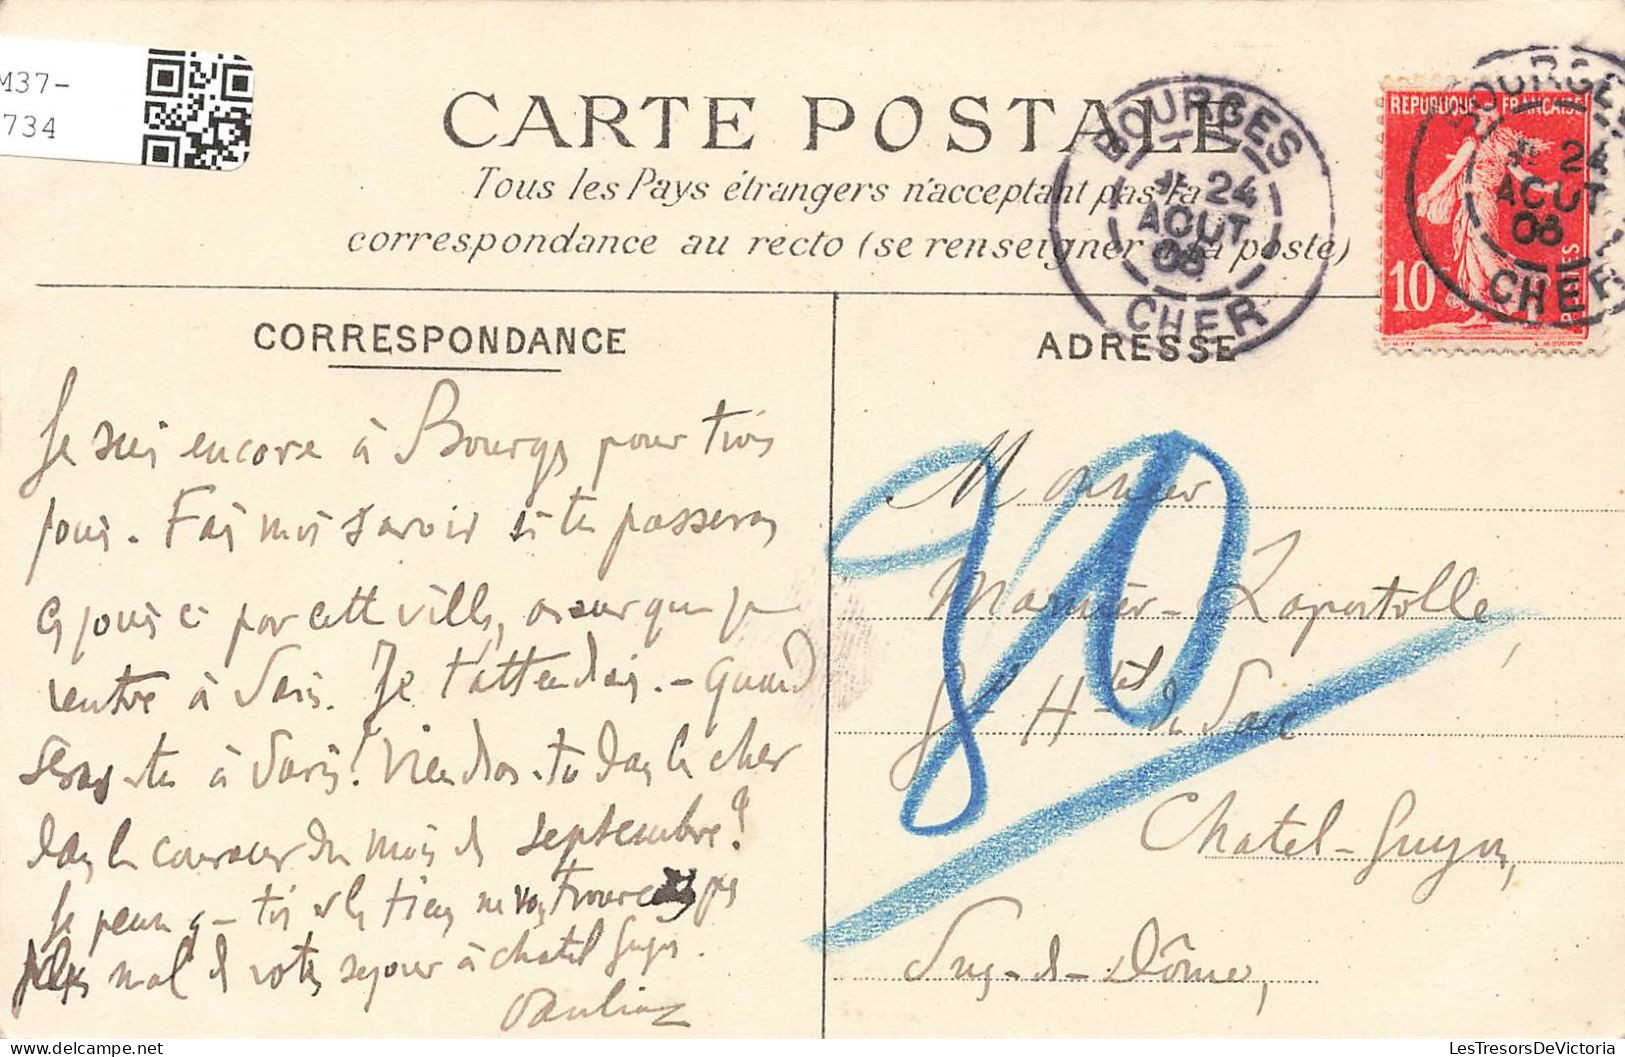 M37-
734
CARTE POSTALE
Tous les Pays étrangers n'acceptant pas la
correspondance au recto (se renseigner à la poste)
BOURGES
24
AOUT
08
CHER
REPUBLIQUE FRANÇAISE
10
POSTES
BOURGES
24
AOUT
08
CHER
CORRESPONDANCE
Je suis encore à Bourges pour trois
jours. Fais moi savoir si tu passeras
ces jours ci par cette ville, que je
rentre à Paris. Je t'attendais. - Quand
seras-tu à Paris! Viendras-tu dans le cher
dans le courant du mois de septembre?
Je pense que toi et les tiens ne vous trouverez pas
plus mal de votre séjour à Chatel Guyon.
ADRESSE
Monsieur
Laportolle,
Gd Htel du Parc
Chatel-Guyon,
Puy-de-Dôme,
80
LesTresorsDeVictoria
delcampe.net